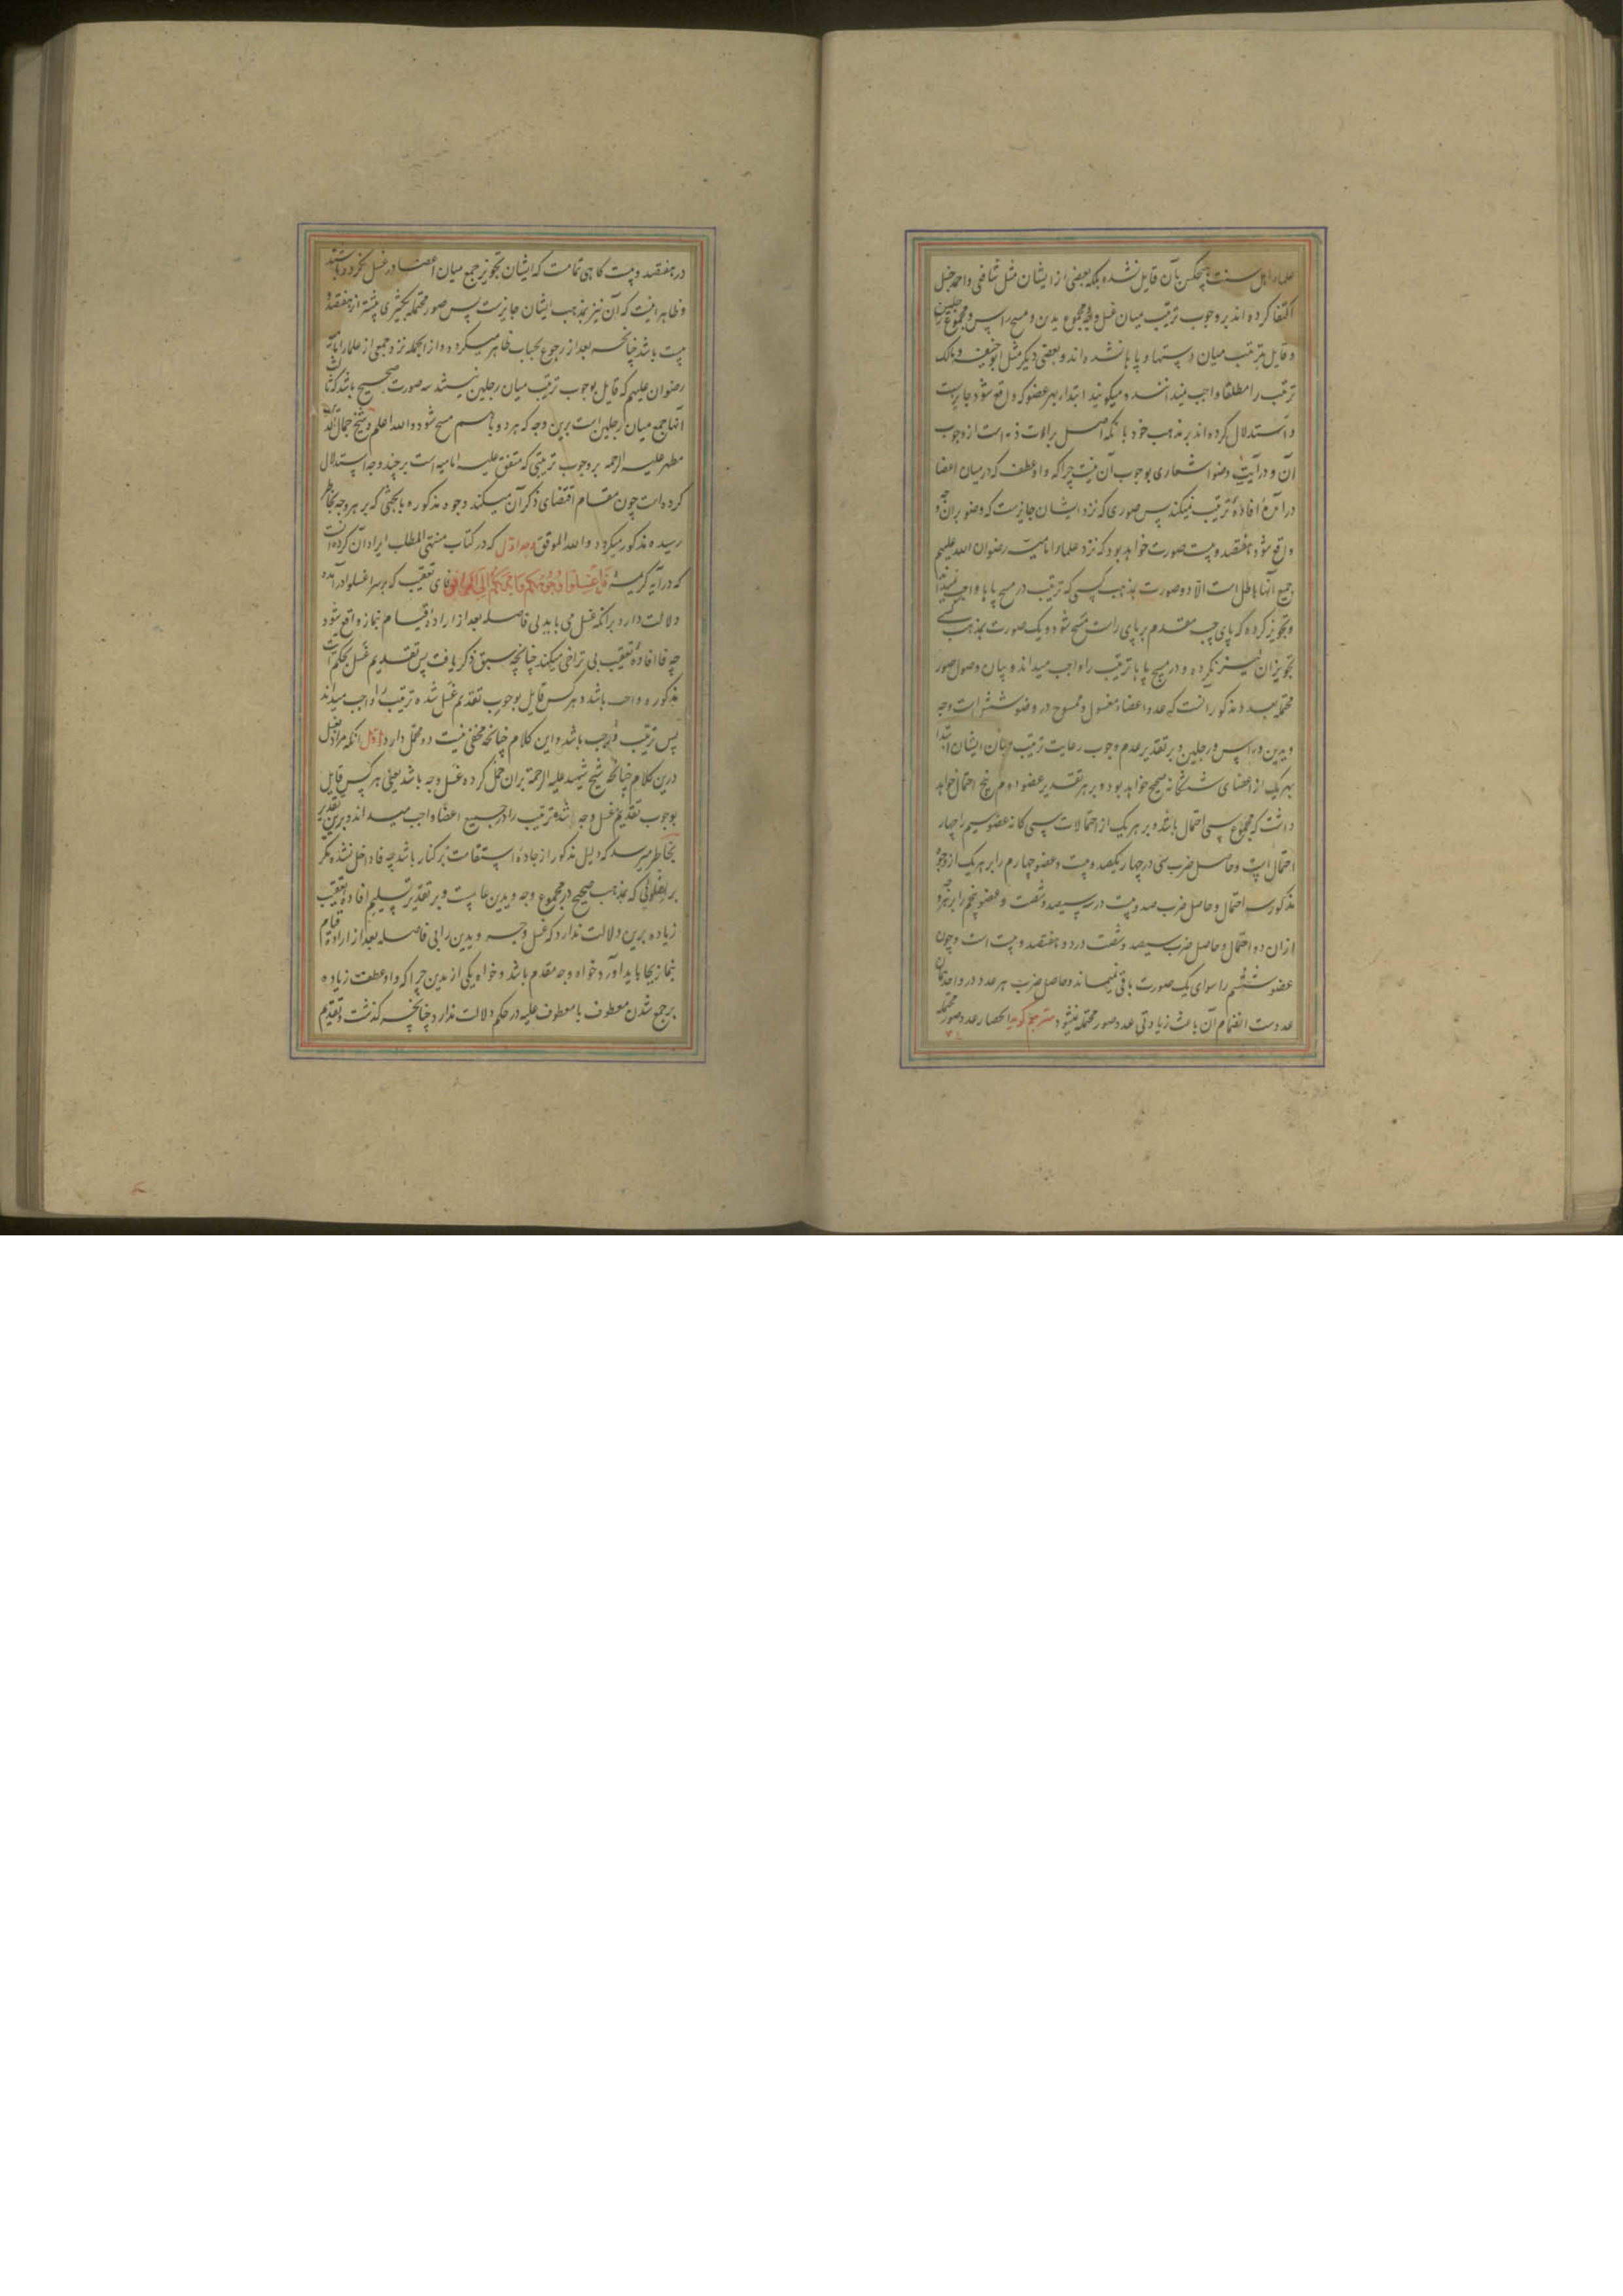 علماء اهل سنت هیچکس بآن قایل نشده بلکه بعضی از ایشان مثل شافعی و احمد حنبل
اکتفا کرده اند بر وجوب ترتیب میان غسل وجه و مجموع یدین و مسح راس و مجموع رجلین
و قایل بترتیب میان دستها و پاها نشده اند و بعضی دیگر مثل ابو حنیفه و مالک
ترتیب را مطلقا واجب نمیدانند و میگویند ابتدا بهر عضو که واقع شود جایزست
و استدلال کرده اند بر مذهب خود بانکه اصل براءت ذمه است از وجوب
آن و در آیت وضو اشعاری بوجوب آن نیست چرا که واو عطف که در میان اعضا
در آمده افادهٔ ترتیب نمیکند پس صوری که نزد ایشان جایزست که وضو بران وجه
واقع شود هفتصد و بیست صورت خواهد بود که نزد علماء امامیه رضوان الله علیهم
جمیع آنها باطل است الا دو صورت بمذهب کسی که ترتیب در مسح پاها واجب نمیداند
و تجویز کرده که پای چپ مقدم بر پای راست مسح شود و یک صورت بمذهب کسی
تجویز آن نیز نکرده و در مسح پاها ترتیب را واجب میداند و بیان وصول صور
محتمله بعدد مذکور آنست که عدد اعضاء مغسول و ممسوح در وضو شش است وجه
و یدین و راس و رجلین و بر تقدیر عدم وجوب رعایت ترتیب میان ایشان ابتدا
بهر یک از اعضای ششگانه صحیح خواهد بود و بر هر تقدیر عضو دوم پنج احتمال خواهد
داشت که مجموع سی احتمال باشد و بر هر یک از احتمالات سی کانه عضو سیم را چهار
احتمال است و حاصل ضرب سی در چهار یکصد و بیست و عضو چهارم را بر هر یک از وجوه
مذکور سه احتمال و حاصل ضرب صد و بیست در سه سیصد و شصت و عضو پنجم را بر هر وجه
ازان دو احتمال و حاصل ضرب سیصد و شصت در دو هفتصد و بیست است و چون
عضو ششم را سوای یک صورت باقی نمیماند و حاصل ضرب هر عدد در واحد همان
عددست انضمام آن باعث زیادتی عدد صور محتمله نمیشود مترجم گوید انحصار عدد صور محتمله
در هفتصد و بیست کاهی تمامست که ایشان تجویز جمع میان اعضا در غسل نکرده باشند
و ظاهر اینست که آن نیز بمذهب ایشان جایزست پس صور محتمله بکثیری بیشتر از هفتصد و
بیست باشد چنانچه بعد از رجوع بحساب ظاهر میکردد و از انجمله نزد جمعی از علماء امامیه
رضوان علیهم که قایل بوجوب ترتیب میان رجلین نیستند سه صورت صحیح باشد که ثالث
آنها جمع میان رجلین است برین وجه که هر دو باهم مسح شود والله اعلم و شیخ جمال الدین
مطهر علیه الرحمه بر وجوب ترتیبی که متفق علیه امامیه است بر چند وجه استدلال
کرده است چون مقام اقتضای ذکر آن میکند وجوه مذکوره با بحثی که بر هر وجه بخاطر
رسیده مذکور میکردد والله الموفق وجه اول که در کتاب منتهی المطلب ایراد آن کرده آنست
که در آیه کریمه فَاغْسِلُوا وُجُوهَكُمْ وَاَيْدِيَكُمْ اِلَى الْمَرَافِقِ فای تعقیب که بر سر اغسلوا در آمده
دلالت دارد برانکه غسل می باید بی فاصله بعد از ارادهٔ قیام نماز واقع شود
چه فا افادهٔ تعقیب بی تراخی میکند چنانچه سبق ذکر یافت پس تقدیم غسل بحکم آیت
مذکوره واجب باشد و هر کس قایل بوجوب تقدیم غسل شده ترتیب را واجب میداند
پس ترتیب واجب باشد و این کلام چنانچه مخفی نیست دو محمل دارد اول آنکه مراد بغسل
درین کلام چنانچه شیخ شهید علیه الرحمة بران حمل کرده غسل وجه باشد یعنی هر کس قایل
بوجوب تقدیم غسل وجه شده ترتیب را در جمیع اعضا واجب میداند و برین تقدیر
بخاطر میرسد که دلیل مذکور از جادهٔ استقامت بر کنار باشد چه فا داخل نشده مکر
بر اغسلوئی که بمذهب صحیح در مجموع وجه و یدین عاملست و بر تقدیر تسلیم افادهٔ تعقیب
زیاده برین دلالت ندارد که غسل وجه و یدین را بی فاصله بعد از ارادهٔ قیام
بنماز بجا باید آورد خواه وجه مقدم باشد و خواه یکی از یدین چرا که واو عطف زیاده
بر جمع شدن معطوف با معطوف علیه در حکم دلالت ندارد چنانچه کذشت و تقدیم